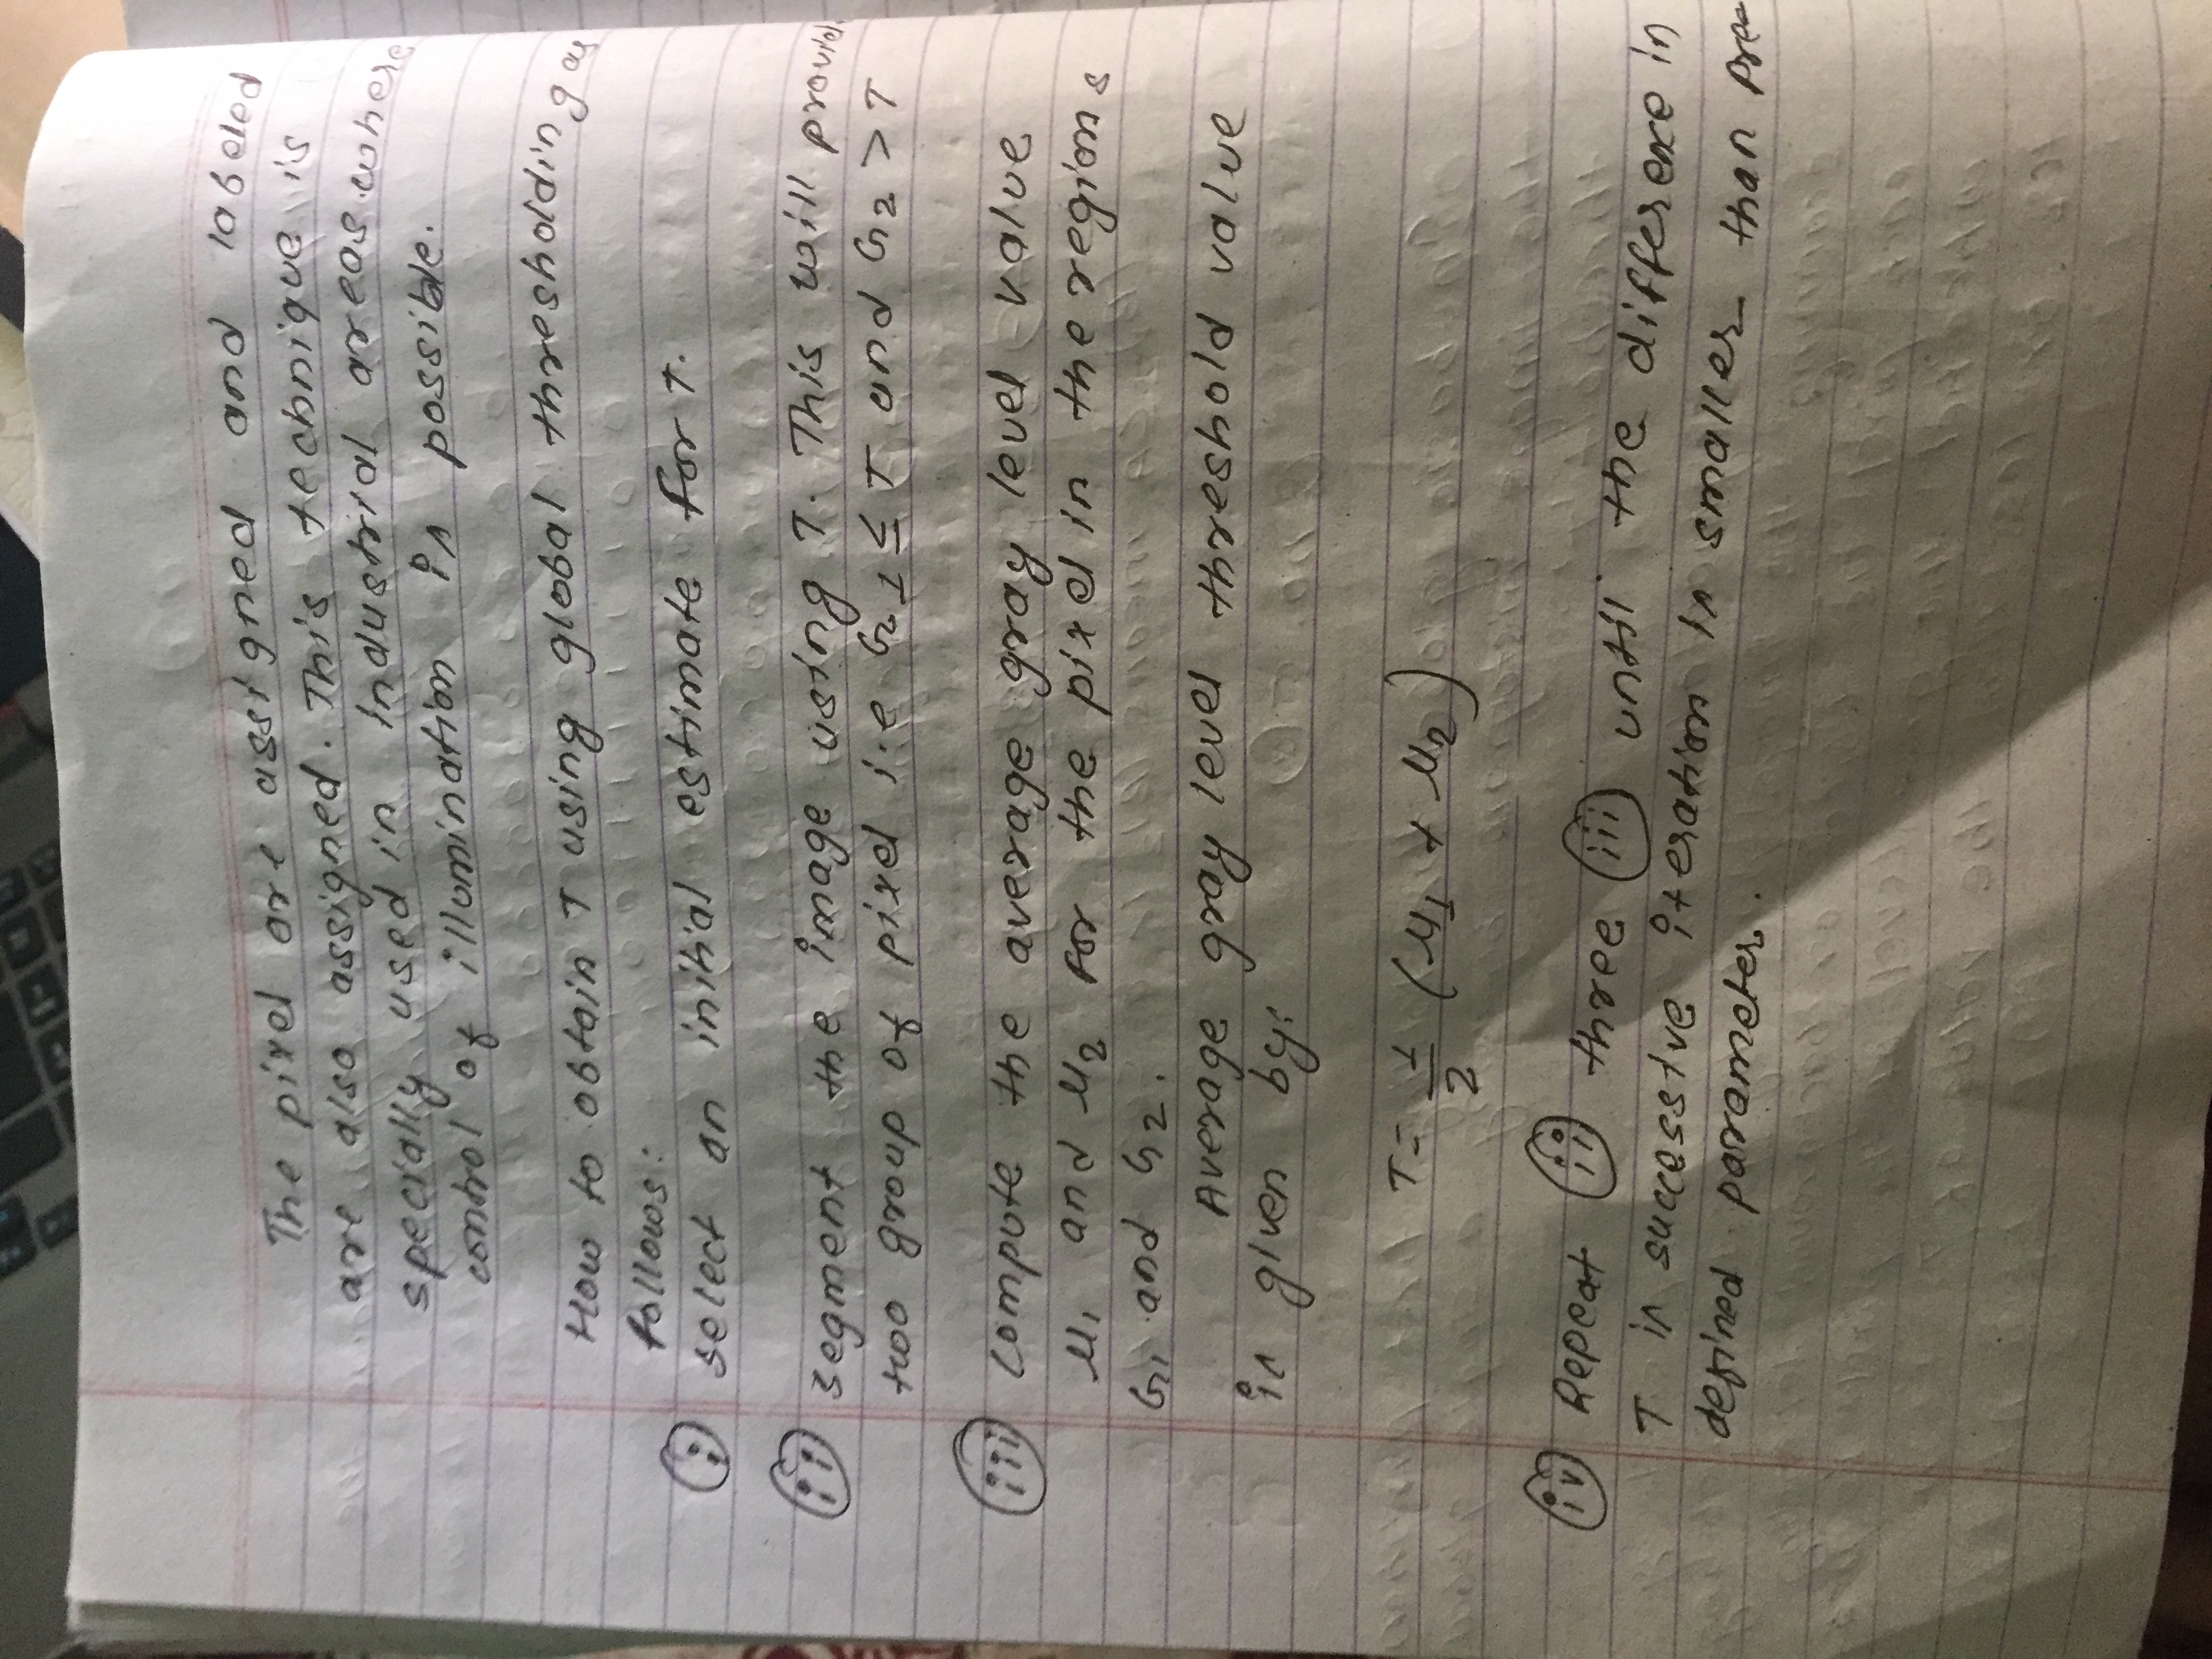 The pixel are assigned and labeled
are also assigned. This technique is
specially used in industrial areas where
control of illumination is possible.
How to obtain T using global thresholding as
follows:
(i) select an initial estimate for T.
(ii) segment the image using T. This will provid
two group of pixel i.e G1 ≤ T and G2 > T
(iii) compute the average gray level value
μ1 and μ2 for the pixel in the regions
G1 and G2.
Average gray level threshold value
is given by:
T = 1/2 (μ1 + μ2)
(iv) Repeat (ii) three (iii) until the difference in
T in successive iteration is smaller than pre-
defined parameter.